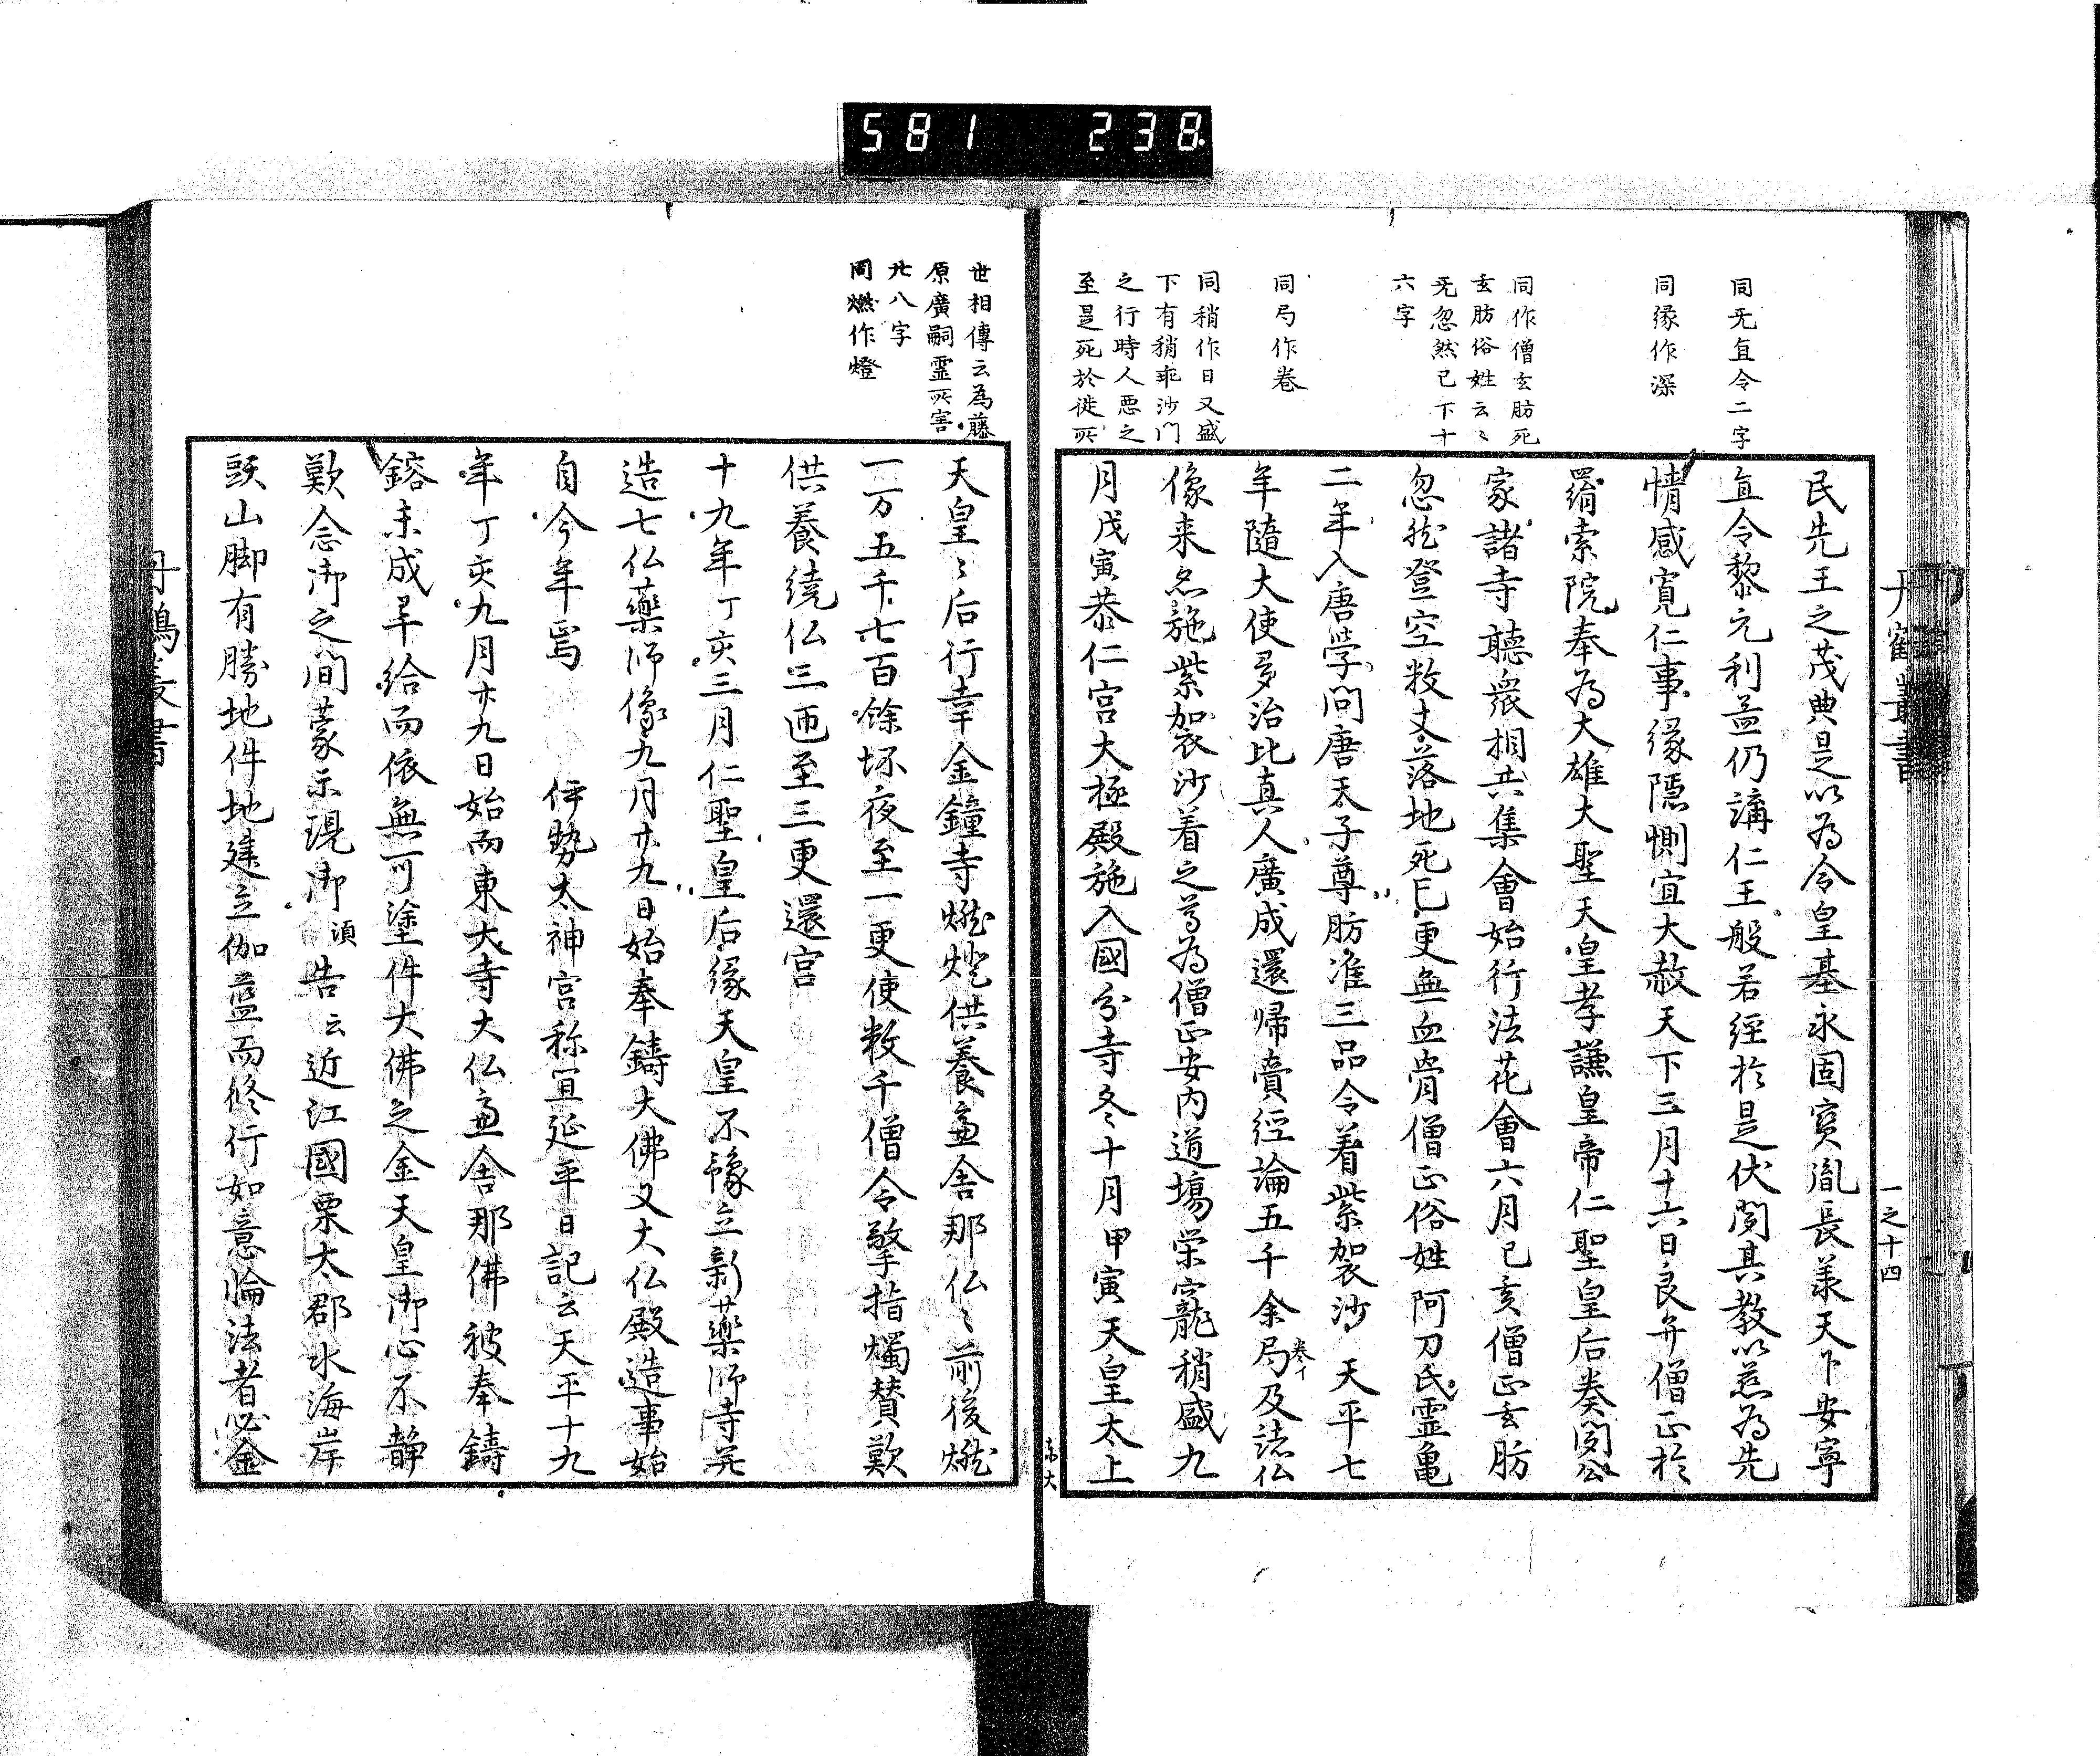 581 238
丹鶴叢書
一之十四
同无宜令二字
同縁作深
同作僧玄肪死
玄肪俗姓云〻
无忽然已下十
六字
同局作巻
同稍作日又盛
下有稍乖沙門
之行時人悪之
至是死於徙所
民先王之茂典是以為令皇基永固寳胤長羕天下安寧
宜令黎元利益仍講仁王般若經於是伏閲其教以慈為先
情感寛仁事縁隱惻宜大赦天下三月十六日良弁僧正於
羂索院奉為大雄大聖天皇孝謙皇帝仁聖皇后奏聞公
家諸寺聽衆相共集會始行法花會六月己亥僧正玄肪
忽然登空数丈落地死已更無血骨僧正俗姓阿刀氏霊亀
二年入唐學問唐天子尊肪准三品令着紫袈沙天平七
年隨大使多治比真人廣成還帰賷經論五千余局及諸仏
巻イ
像来尓施紫袈沙着之尊為僧正安内道場栄寵稍盛九
月戊寅恭仁宮大極殿施入國分寺冬十月甲寅天皇太上
東大
世相傳云為藤
原廣嗣霊所害
廿八字
同燃作燈
天皇〻后行幸金鐘寺燃燈供養盧舎那仏〻前後燃
一万五千七百餘坏夜至一更使数千僧令擎指燭賛歎
供養繞仏三匝至三更還宮
十九年丁亥三月仁聖皇后縁天皇不豫立新藥師寺并
造七仏藥師像九月廿九日始奉鑄大佛又大仏殿造事始
自今年焉 伊勢太神宮祢宜延平日記云天平十九
年丁亥九月廿九日始而東大寺大仏盧舎那佛被奉鑄
鎔未成畢給而依無可塗件大佛之金天皇御心不静
歎念御之間蒙示現御須告云近江國栗太郡水海岸
頭山脚有勝地件地建立伽藍而修行如意輪法者必金